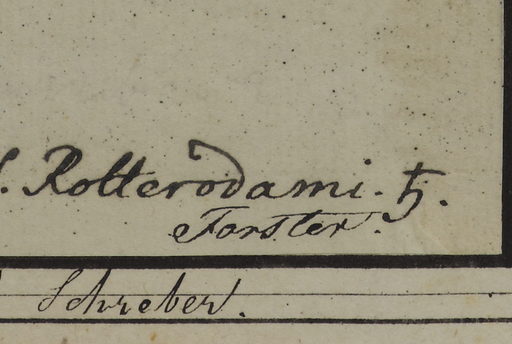 . Rotterodami. ♄.
Forster.
Schreber.